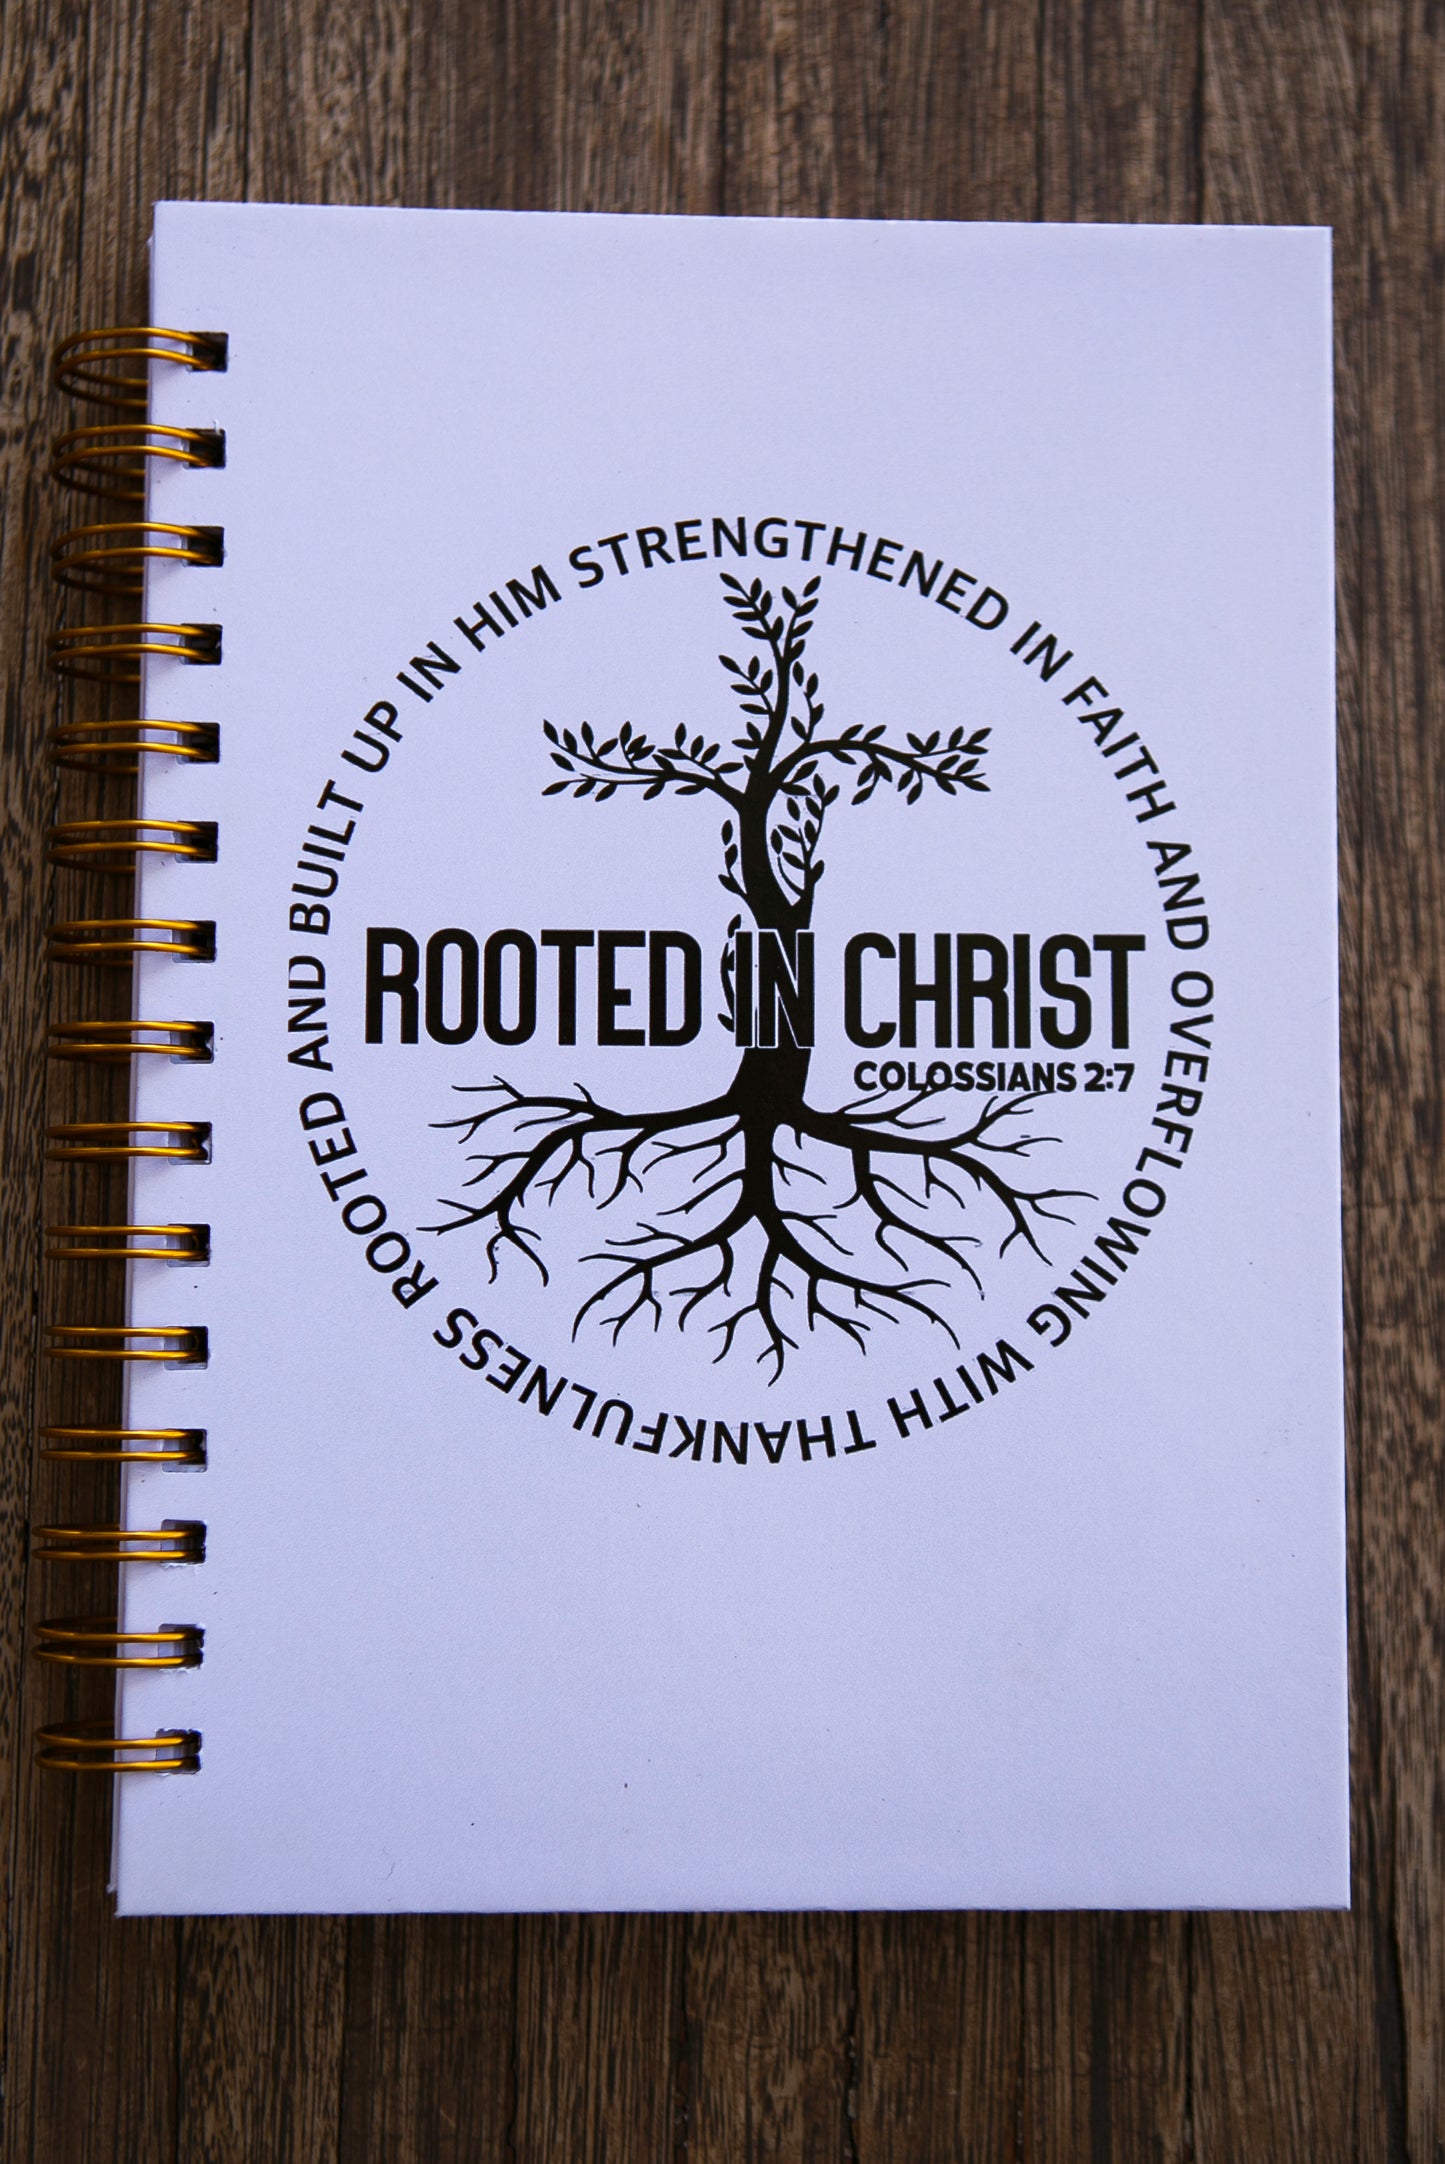 ROOTED AND BUILT UP IN HIM STRENGTHENED IN FAITH AND OVERFLOWING WITH THANKFULNESS
ROOTED IN CHRIST
COLOSSIANS 2:7